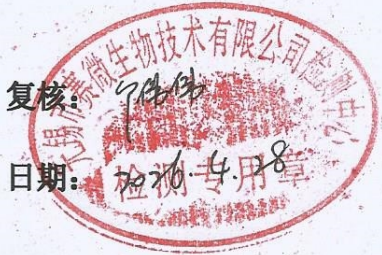 无锡市赛微生物技术有限公司检测中心
复核：
日期：2026.4.28
检测专用章